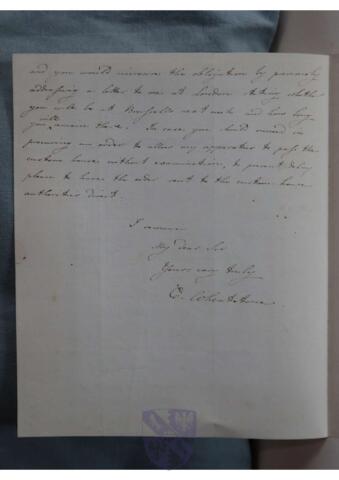 and you would increase the obligation by
addressing a letter to me at London stating whether
you will be at Brussells next week and how long
you will remain there. In case you should succeed in
procuring an order to allow my apparatus to pass the
custom house without examination, to prevent delay
please to have the order sent to the custom house
authorities direct.
I remain
My dear Sir
Yours very truly
C. Wheatstone